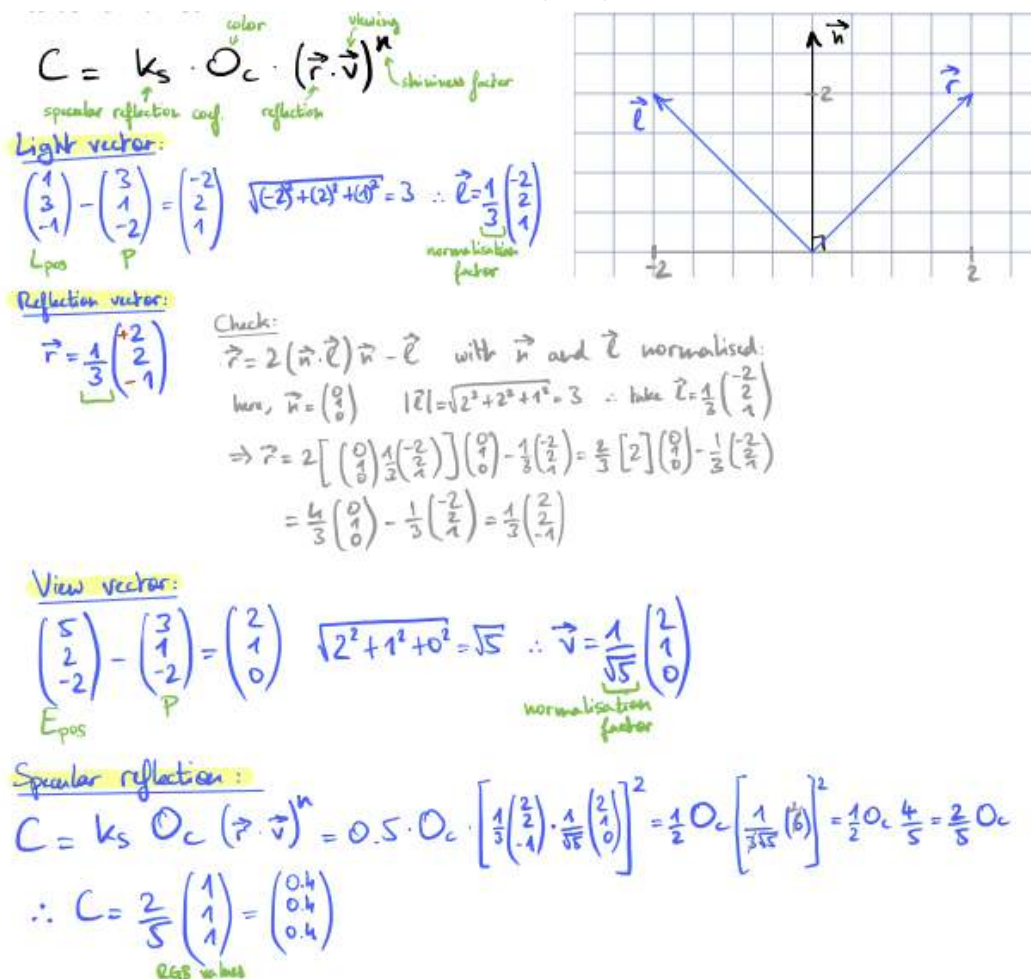 color viewing
C = kₛ · O_c · (r⃗ · v⃗)ⁿ shininess factor
specular reflection coef. reflection
n⃗
2
l⃗ r⃗
-2 2
Light vector:
(1 3 -1) - (3 1 -2) = (-2 2 1) √((-2)²+(2)²+(1)²) = 3 ∴ l⃗ = 1/3 (-2 2 1)
Lpos P normalisation factor
Reflection vector:
r⃗ = 1/3 (+2 2 -1)
Check:
r⃗ = 2(n⃗·l⃗)n⃗ - l⃗ with n⃗ and l⃗ normalised:
here, n⃗ = (0 1 0) |l⃗| = √(2²+2²+1²) = 3 ∴ take l⃗ = 1/3 (-2 2 1)
⇒ r⃗ = 2[(0 1 0) 1/3 (-2 2 1)](0 1 0) - 1/3 (-2 2 1) = 2/3 [2](0 1 0) - 1/3 (-2 2 1)
= 4/3 (0 1 0) - 1/3 (-2 2 1) = 1/3 (2 2 -1)
View vector:
(5 2 -2) - (3 1 -2) = (2 1 0) √(2²+1²+0²) = √5 ∴ v⃗ = 1/√5 (2 1 0)
Epos P normalisation factor
Specular reflection:
C = kₛ O_c (r⃗ · v⃗)ⁿ = 0.5 · O_c · [1/3 (2 2 -1) · 1/√5 (2 1 0)]² = 1/2 O_c [1/(3√5) (6)]² = 1/2 O_c 4/5 = 2/5 O_c
∴ C = 2/5 (1 1 1) = (0.4 0.4 0.4)
RGB values